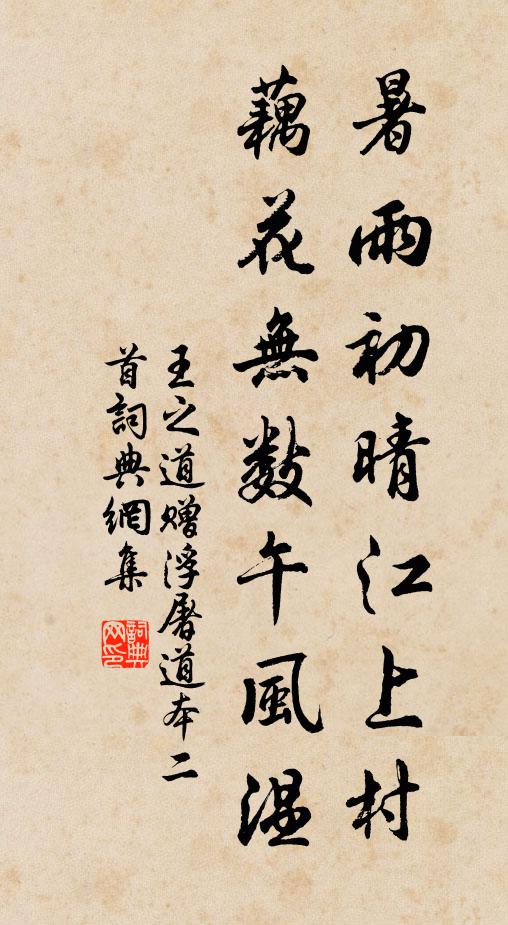 暑雨初晴江上村
藕花無數午風温
王之道赠浮屠道本二
首詞典網集
詞典
网印